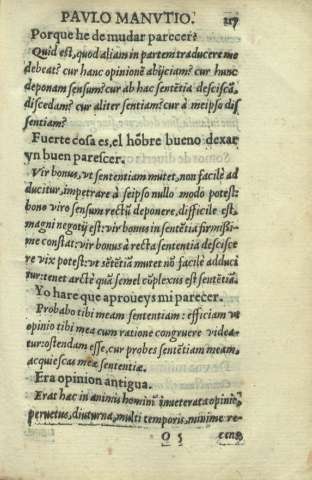 PAVLO MANVTIO. 217
Porque he de mudar parecer?
Quid est, quod aliam in partem traducere me
debeat? cur hanc opinionē abijciam? cur hunc
deponam sensum? cur ab hac sentētia desciscā,
discedam? cur aliter sentiam? cur à meipso dis
sentiam?
Fuerte cosa es, el hōbre bueno dexar
vn buen parescer.
Vir bonus, vt sententiam mutet, non facilè ad
ducitur, impetrare à seipso nullo modo potest:
bono viro sensum rectū deponere, difficile est,
magni negotij est: vir bonus in sentētia firmißi-
mè constat: vir bonus à recta sententia descisce
re vix potest: vt sētētiā mutet nō facilè adduci
tur: tenet arctè quā semel cūplexus est sentētiā.
Yo hare que aproueys mi parecer.
Probabo tibi meam sententiam: efficiam vt
opinio tibi mea cum ratione congruere videa-
tur: ostendam esse, cur probes sentētiam meam,
acquiescas meæ sententiæ.
Era opinion antigua.
Erat hæc in animis hominū inueterata opinio,
peruetus, diuturna, multi temporis, minime re-
O 5 cens